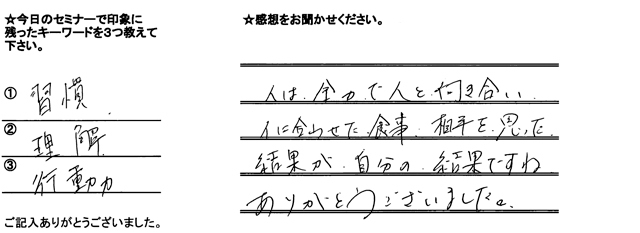 ☆今日のセミナーで印象に
残ったキーワードを3つ教えて
下さい。
① 習慣
② 理解
③ 行動力
ご記入ありがとうございました。
☆感想をお聞かせください。
人は、全力で人と、向き合い、
人に合わせた、食事、相手を、思った、
結果が、自分の、結果ですね
ありがとうございました。